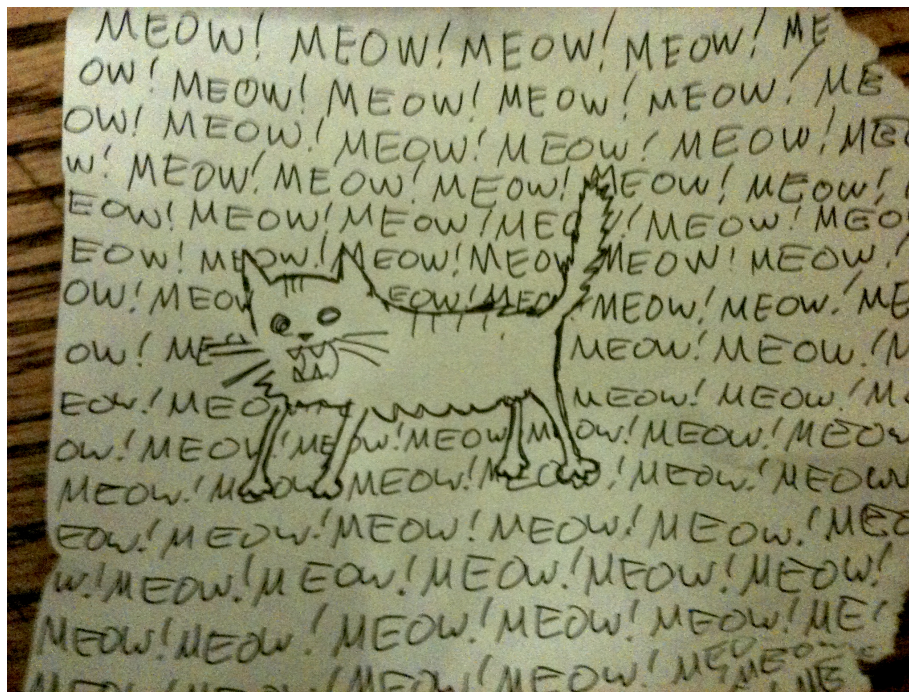 MEOW! MEOW! MEOW! MEOW! ME
OW! MEOW! MEOW! MEOW! MEOW! ME
OW! MEOW! MEOW! MEOW! MEOW! MEO
W! MEOW! MEOW! MEOW! MEOW! MEOW!
EOW! MEOW! MEOW! MEO ! MEOW! MEO
EOW! MEOW! MEOW! MEOW MEOW! MEOW!
OW! MEOW EOW! MEO MEOW! MEOW! ME
OW! ME MEOW! MEOW! M
EOW! MEO MEOW! MEOW! M
OW! MEOW! MEOW! MEOW M OW! MEOW! MEOW
MEOW! MEOW MEOW! MEOW! MEOW! MEOW
EOW! MEOW! MEOW! MEOW! MEOW! MEO
W! MEOW! MEOW! MEOW! MEOW! MEOW!
MEOW! MEOW! MEOW! MEOW! MEOW! ME!
MEOW! MEOW! MEOW! MEOW!